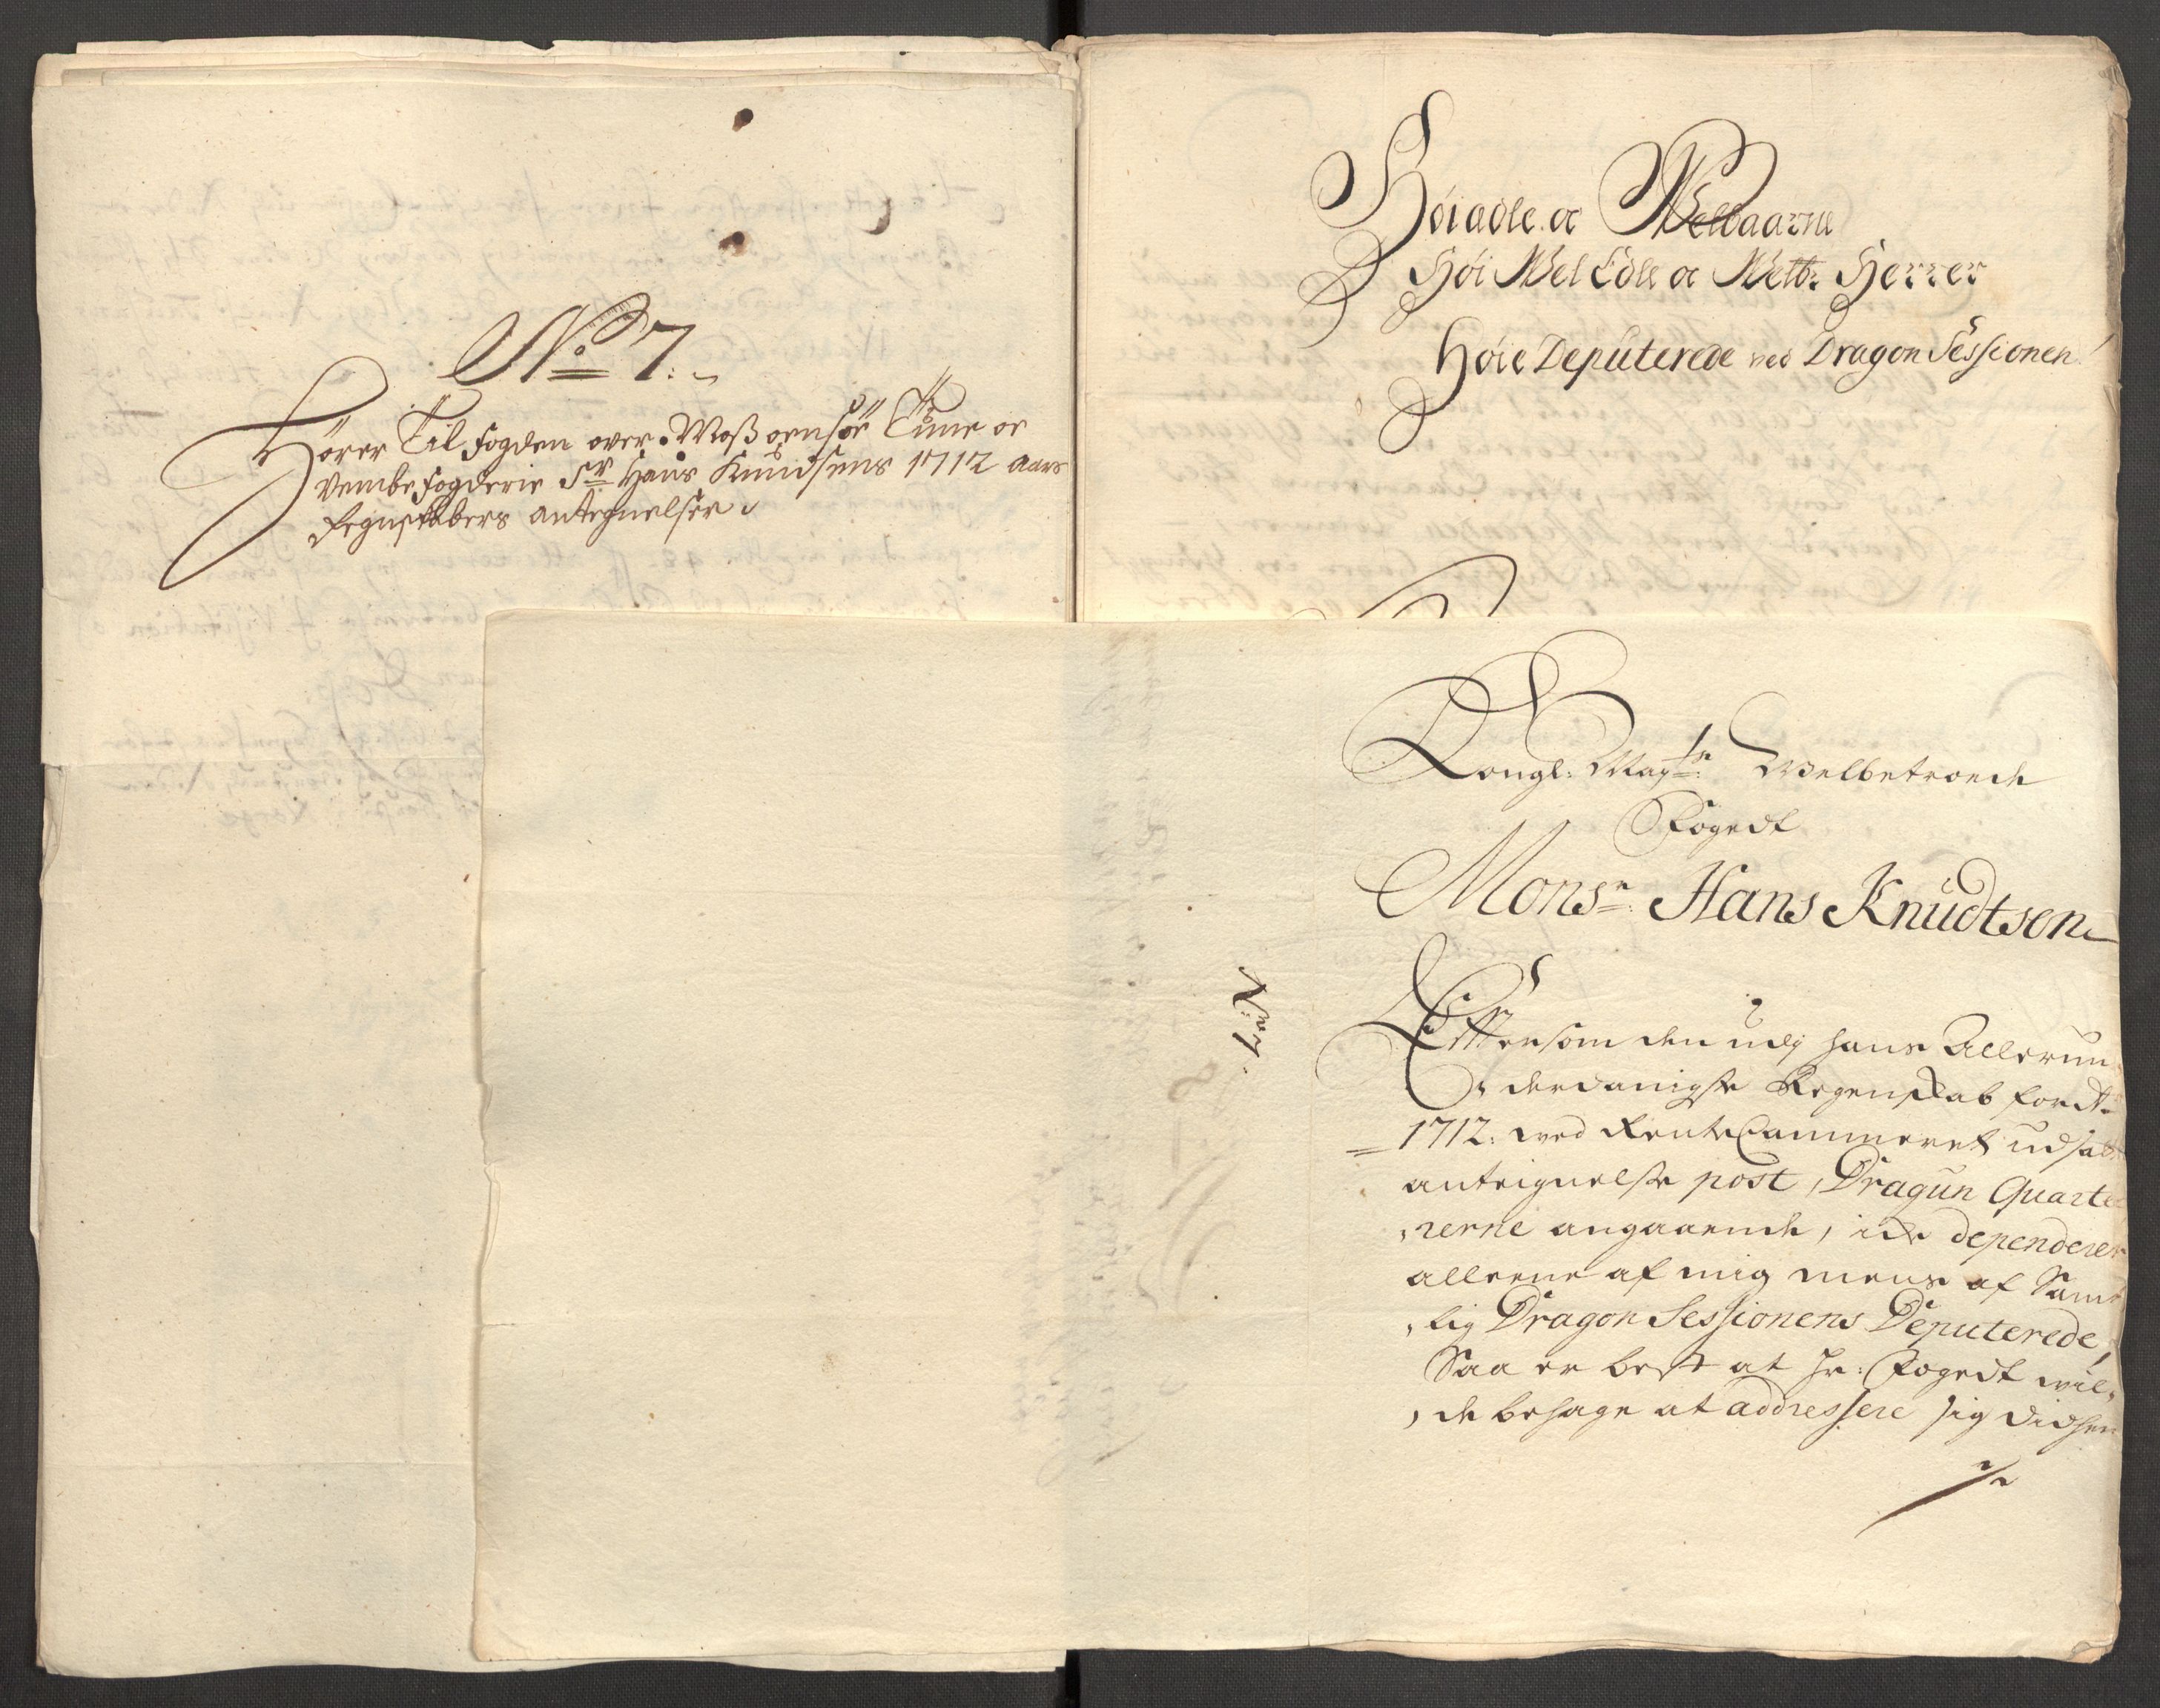 No 7:
Hører Til fogden over Moss ørnsøe Tune oc
Vembe fogderie Sr Hans Knudsens 1712 Aars
Regnskabers antegnelser
Høiædle oc Welbaarne
Høi Wel Edle oc Welbr Herrer
Høie Deputerede ved Dragon Sessionen
Kongl: Maysts Welbetroede
Fogedt
Monsr: Hans Knudtson
No: 7.
Efftersom den udj hans Allerun
derdanigste Regenskab for Ao
1712: ved RenteCammeret udsatte
anteignelse post, Dragun Quarte
rerne angaaende, icke dependerer
alleene af mig mens af Samt
lig Dragon Sessionens Deputerede,
Saa er best at Hr: Fogedt wil
de behage at addressere sig didhen